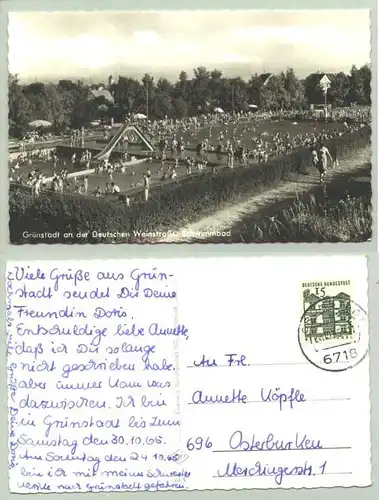 Grünstadt an der Deutschen Weinstraße, Schwimmbad
Viele Grüße aus Grün-
stadt sendet Dir Deine
Freundin Doris.
Entschuldige liebe Annette,
daß ich Dir solange
nicht geschrieben habe.
aber immer kam was
dazwischen. Ich bin
in Grünstadt bis zum
Samstag den 30.10.65.
Am Sonntag den 24.10.65
bin ich mit meine Schwester
gefahren.
Nochmals viele Grüße Deine Doris
DEUTSCHE BUNDESPOST
15
6718
An Frl.
Annette Köpfle
696 Osterburken
1